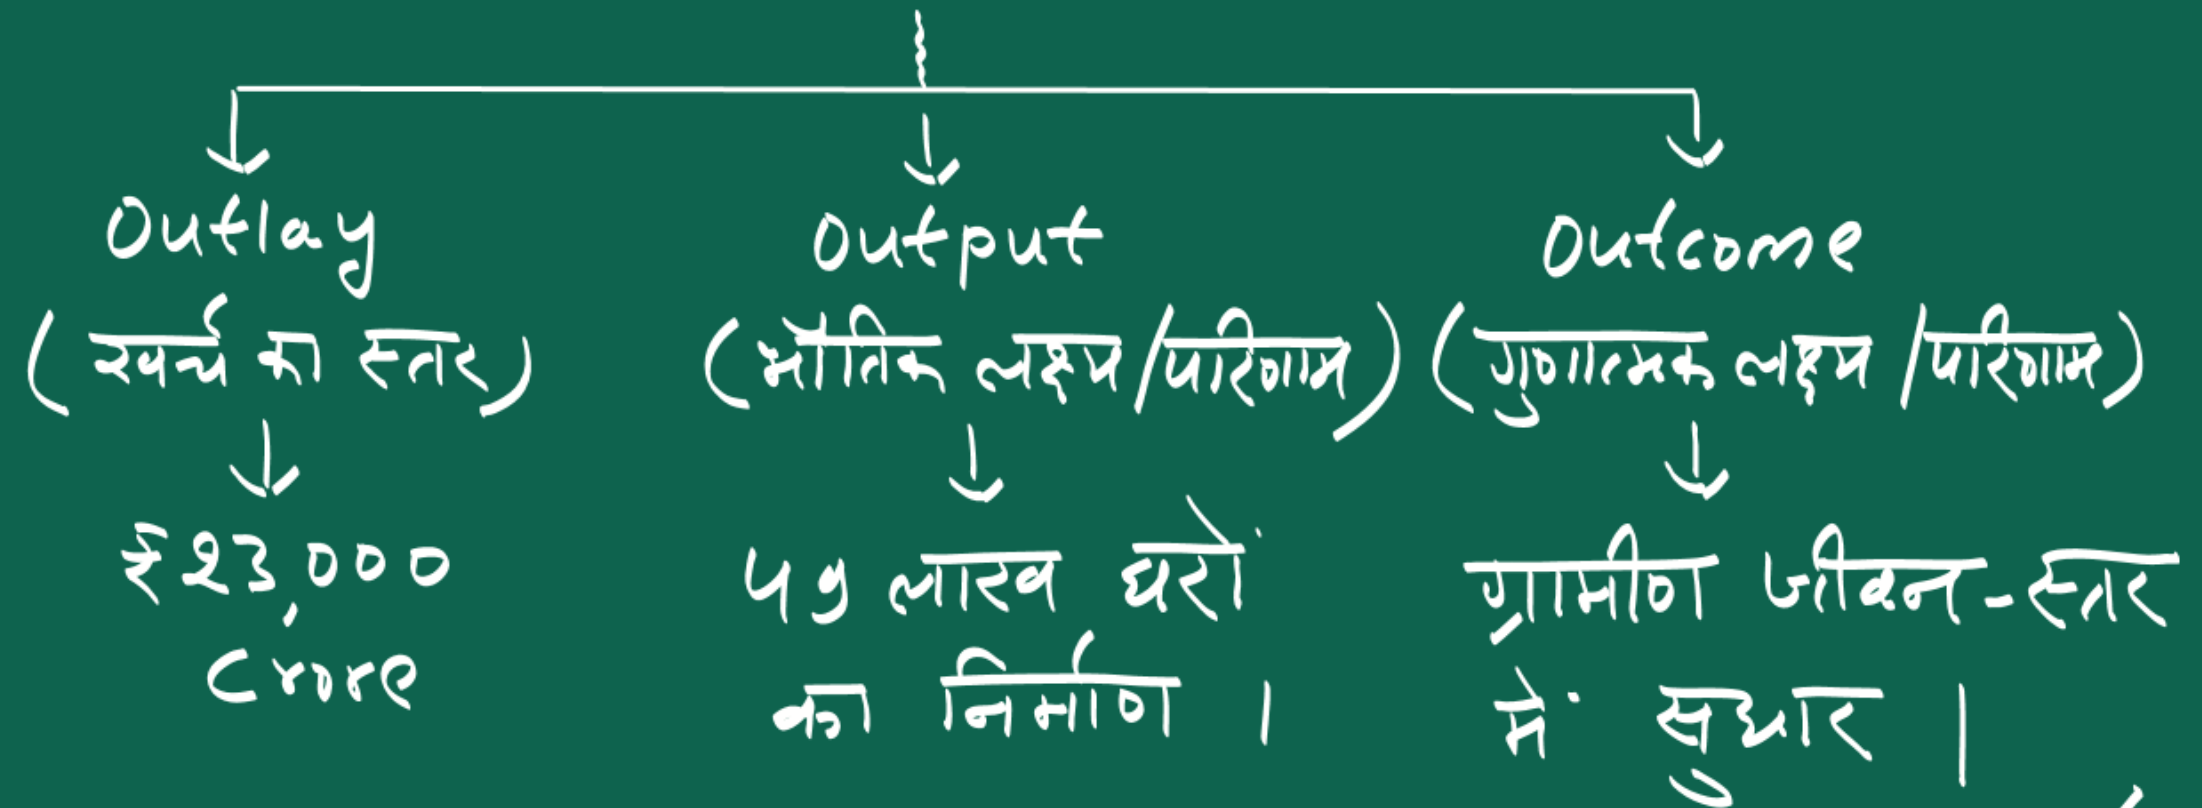 Outlay
(खर्च का स्तर)
₹23,000
Crore
Output
(भौतिक लक्ष्य/परिणाम)
लाख घरों
का निर्माण ।
Outcome
(गुणात्मक लक्ष्य/परिणाम)
ग्रामीण जीवन-स्तर
में सुधार ।